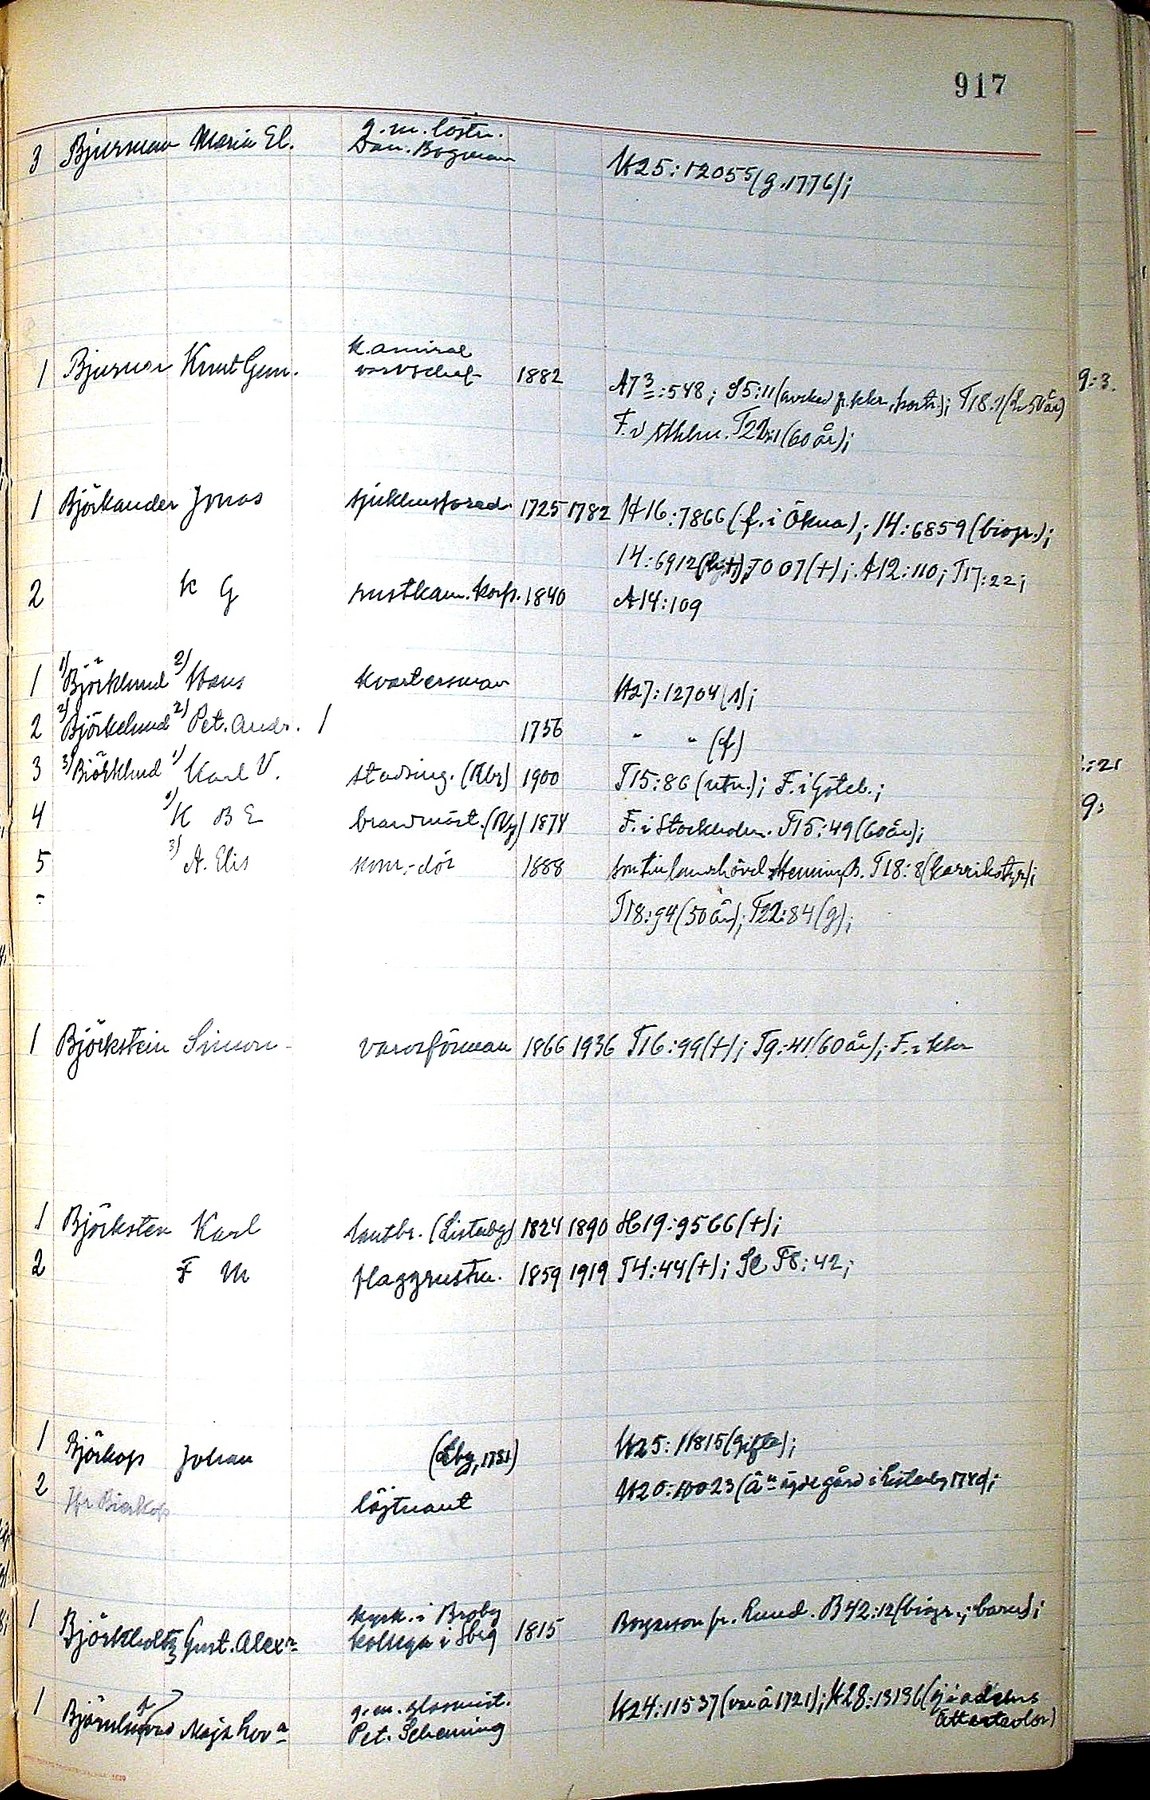 917
3 Bjurman Maria El. g.m. löstn. Dan. Bogman H25:12055 (g.1776);
1 Bjurner Knut Gun. k. amiral varvschef 1882 A7 3:548; S5:11 (avsked fr. kkr., portr.); T18:1 (L 50 år)
F. i Sthlm. T22:1 (60 år);
1 Björkander Jonas sjukhuspred. 1725 1782 H16:7866 (f. i Ökna); 14:6859 (biogr.);
14:6912 7007 (+); A12:110; T17:22;
2 K G rustkam. korp. 1840 A14:109
1 1) Björklund 2) Hans kvartersman H27:12704 (1);
2 2) Björkelund 2) Pet. Andr. 1 1756 " " (f)
3 3) Björklund 1) Karl V. stadsing. (Kbr) 1900 T15:86 (utn.); F. i Göteb.;
4 2) K B E brandmäst. (Ny) 1874 F. i Stockholm. T15:49 (60 år);
5 3) A. Elis kom.-dir 1888 T18:8 (karrikatyr);
T18:94 (50 år); T22:84 (g);
1 Björkstein Simon varvsförman 1866 1936 T16:99 (+); T9:41 (60 år); F. i kkr
1 Björksten Karl lantbr. (Listerby) 1824 1890 H19:9566 (+);
2 F M flaggrustm. 1859 1919 T4:44 (+); Se T8:42;
1 Björkop Johan 1781) H25:11815 (gifte);
2 Hr Bierkop löjtnant H20:10023 ägde gård i Listerby
1 Björkholtz Gust. Alexr kyrk. i Broby kollega i Sbg 1815 Borgarson fr. Lund. B42:12 (biogr.; barn);
1 Maja Lova g.m. glasmäst. Pet. Schening H24:11537 (var å 1721); H28:13136